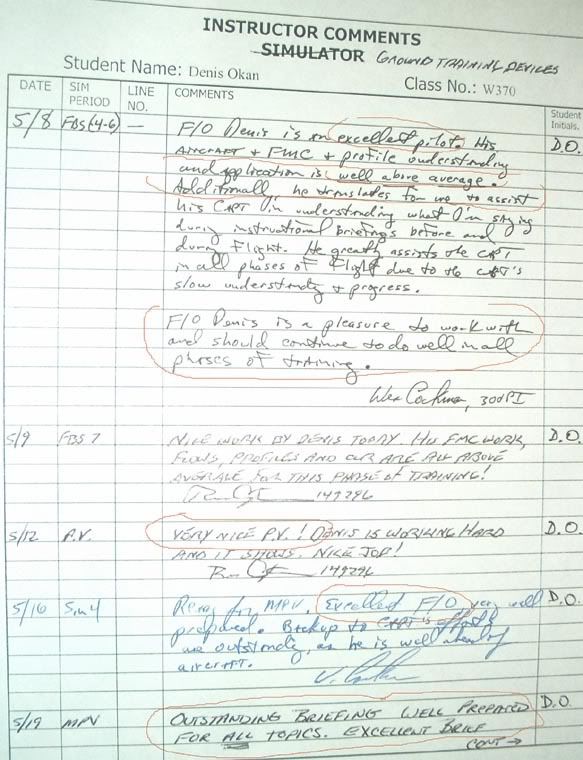 INSTRUCTOR COMMENTS
SIMULATOR GROUND TRAINING DEVICES
Student Name: Denis Okan
Class No.: W370
DATE SIM PERIOD LINE NO. COMMENTS Student Initials.
5/8 FBS (4-6) — F/O Denis is an excellent pilot. His D.O.
AIRCRAFT + FMC + profile understanding
and application is well above average.
Additionall he translates for me to assist
his CAPT in understanding what I'm saying
during instructional briefings before and
during flight. He greatly assists the CAPT
in all phases of flight due to the CAPT's
slow understanding + progress.
F/O Denis is a pleasure to work with
and should continue to do well in all
phases of training.
300PI
5/9 FBS 7 NICE WORK BY DENIS TODAY. HIS FMC WORK, D.O.
FLOWS, PROFILES AND CLR ARE ALL ABOVE
AVERAGE FOR THIS PHASE OF TRAINING!
149296
5/12 P.V. VERY NICE P.V.! DENIS IS WORKING HARD D.O.
AND IT SHOWS. NICE JOB!
149296
5/16 Sim 4 Ready for MPV. Excellent F/O very well D.O.
prepared. Backup to CAPT's efforts
are outstanding, as he is well ahead of
aircraft.
5/19 MPV OUTSTANDING BRIEFING WELL PREPARED D.O.
FOR ALL TOPICS. EXCELLENT BRIEF
CONT →